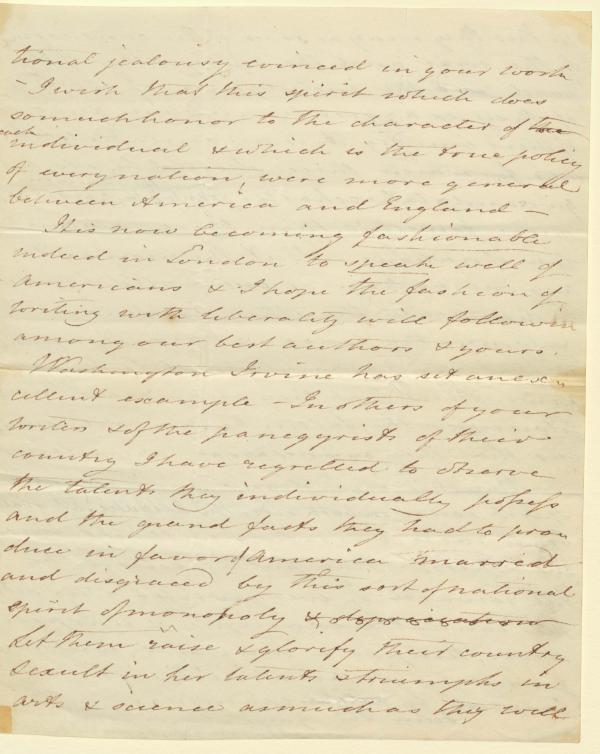 tional jealousy evinced in your work
- I wish that this spirit which does
so much honor to the character of the
each
individual & which is the true policy
of every nation, were more general
between America and England -
It is now becoming fashionable
indeed in London to speak well of
Americans & I hope the fashion of
writing with liberality will follow in
among our best authors & yours.
Washington Irvine has set an ex-
cellent example - In others of your
writers & of the panegyrists of their
country I have regretted to observe
the talents they individually possess
and the grand facts they had to pro
duce in favor of America marred
and disgraced by this sort of national
spirit of monopoly & depreciation
Let them raise & glorify their country
& exult in her talents & triumphs in
arts & science as much as they will